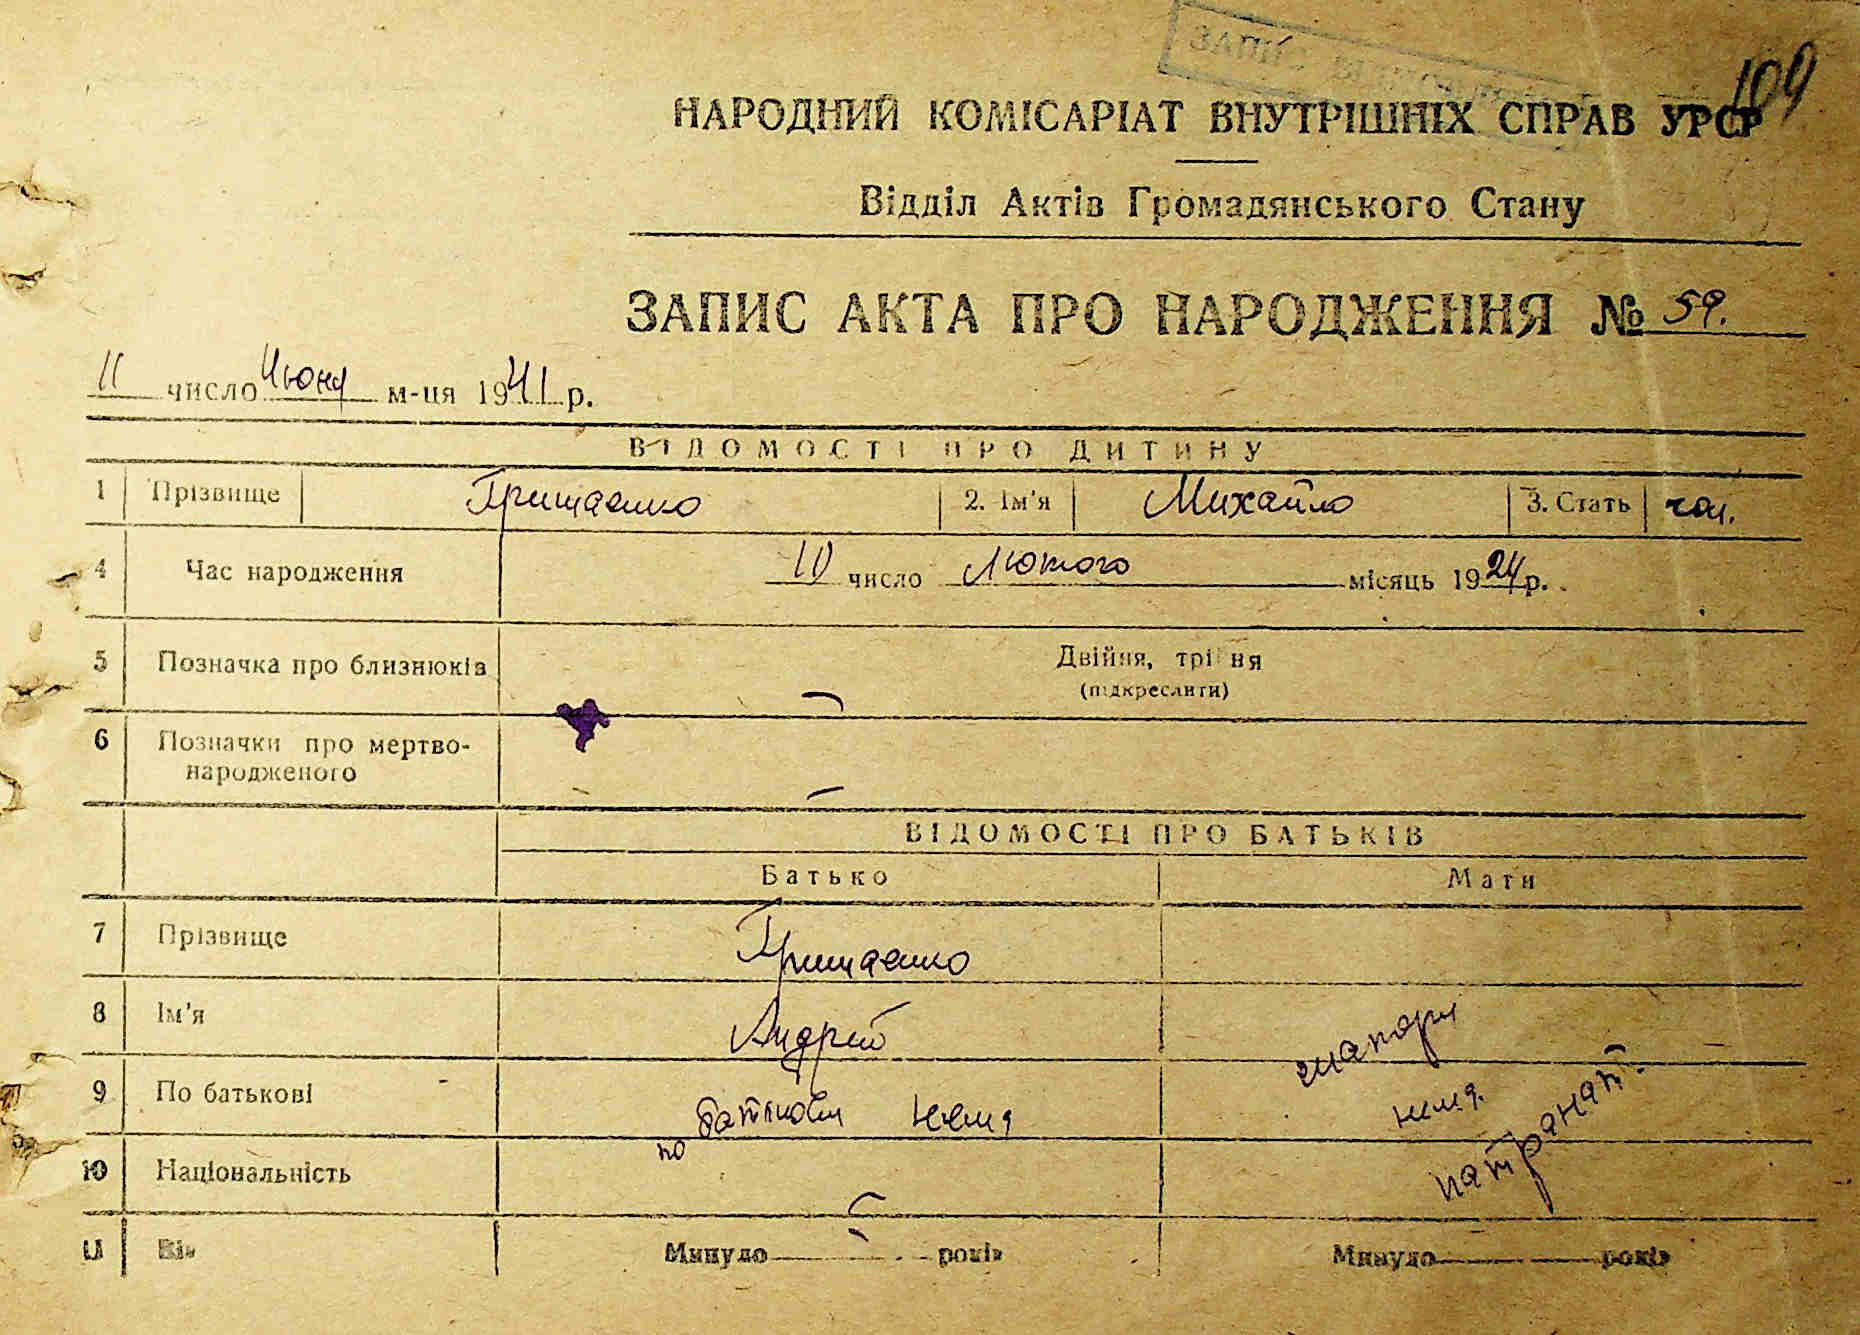 ЗАПИС
109
НАРОДНИЙ КОМІСАРІАТ ВНУТРІШНІХ СПРАВ УРСР
Відділ Актів Громадянського Стану
ЗАПИС АКТА ПРО НАРОДЖЕННЯ № 59.
11 число Июня м-ця 1941 р.
ВІДОМОСТІ ПРО ДИТИНУ
1 Прізвище Грищаенко 2. Ім'я Михайло 3. Стать чол.
4 Час народження 10 число Лютого місяць 1924 р.
5 Позначка про близнюків Двійня, трійня
(підкреслити)
6 Позначки про мертво-
народженого
ВІДОМОСТІ ПРО БАТЬКІВ
Батько Мати
7 Прізвище Грищаенко
8 Ім'я Андрей
9 По батькові по батькови нема
матери
нема
патронат.
10 Національність
11 Вік Минуло років Минуло років